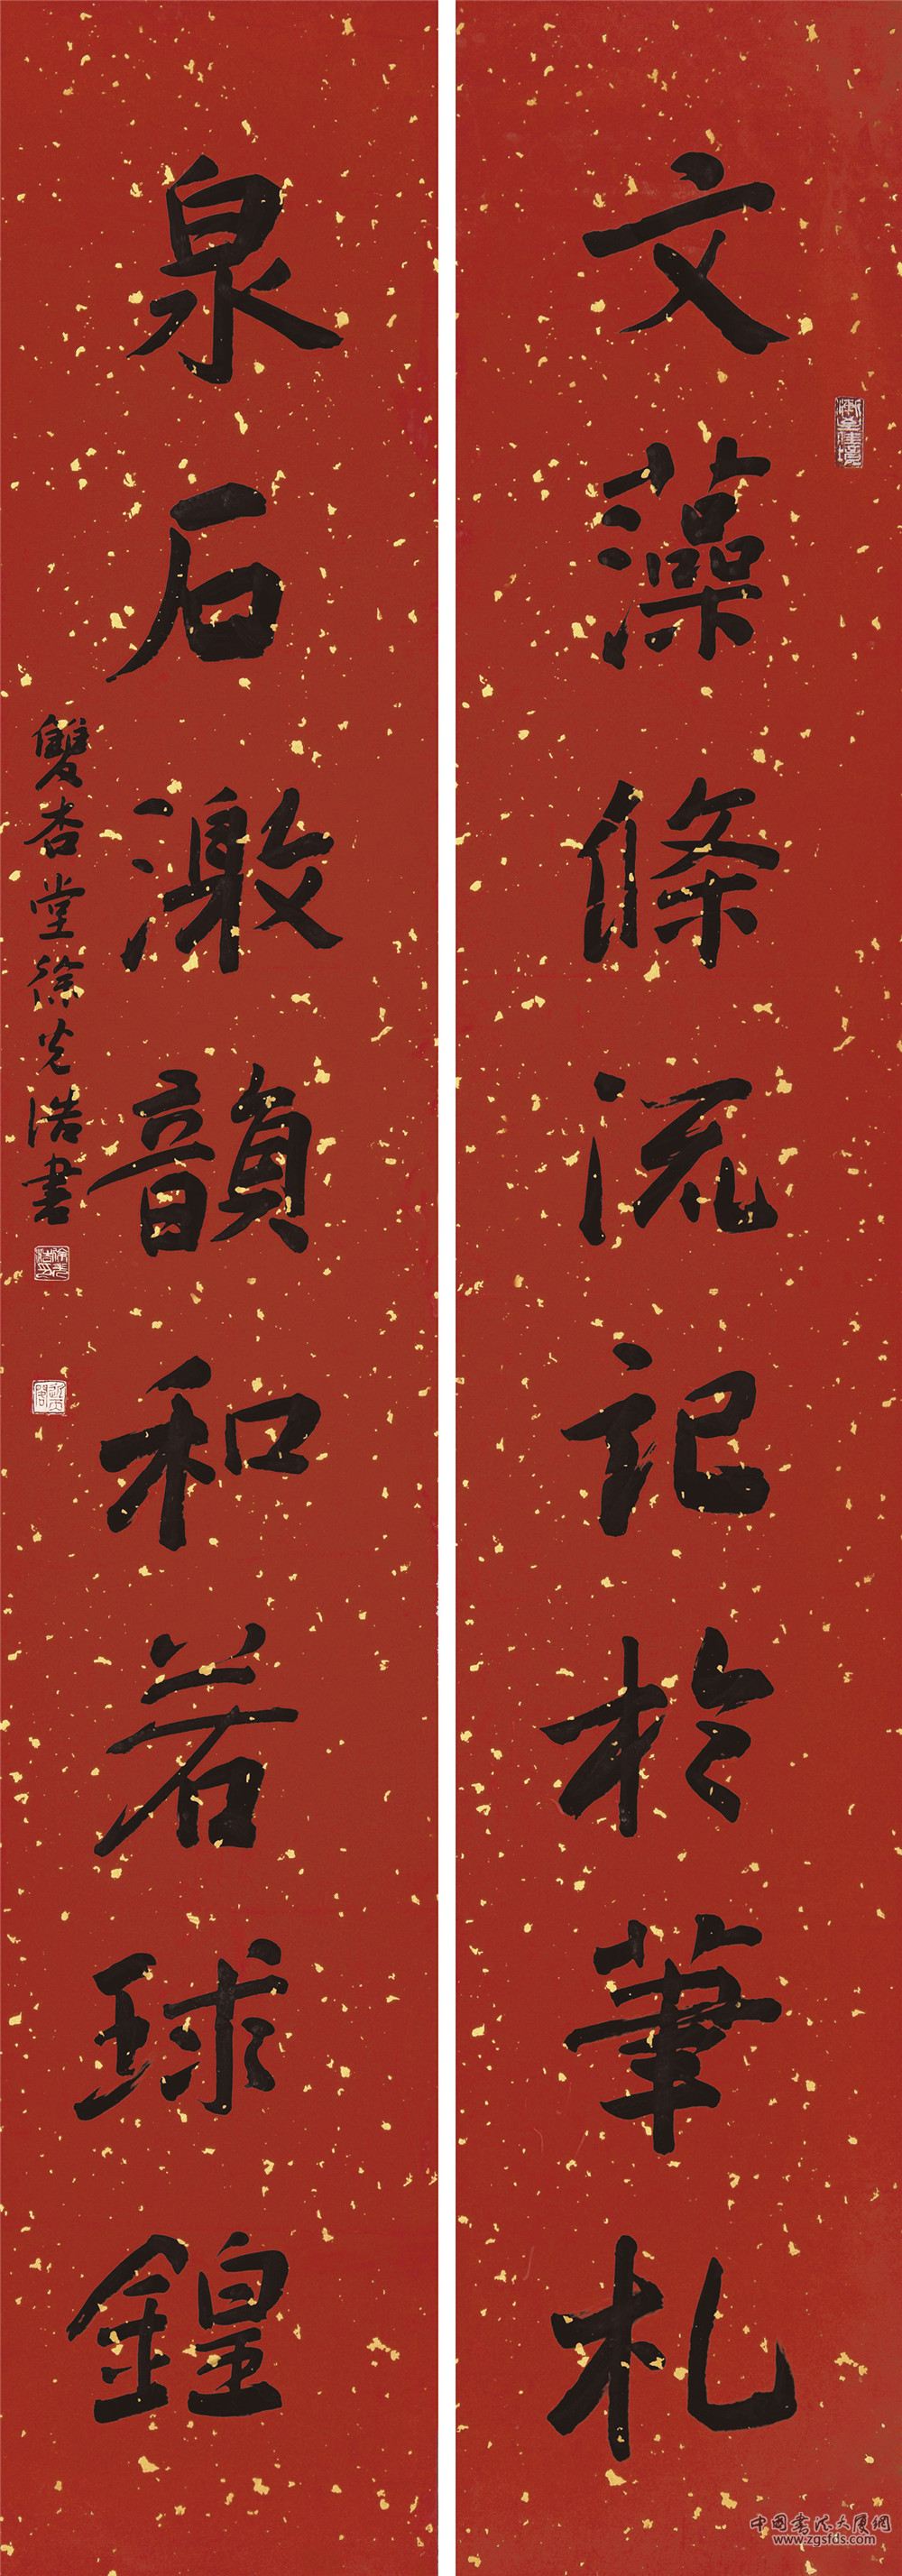 文藻條流記於筆札
泉石激韻和若球鍠
雙杏堂徐光浩書
中国书法大厦网
www.zgsfds.com